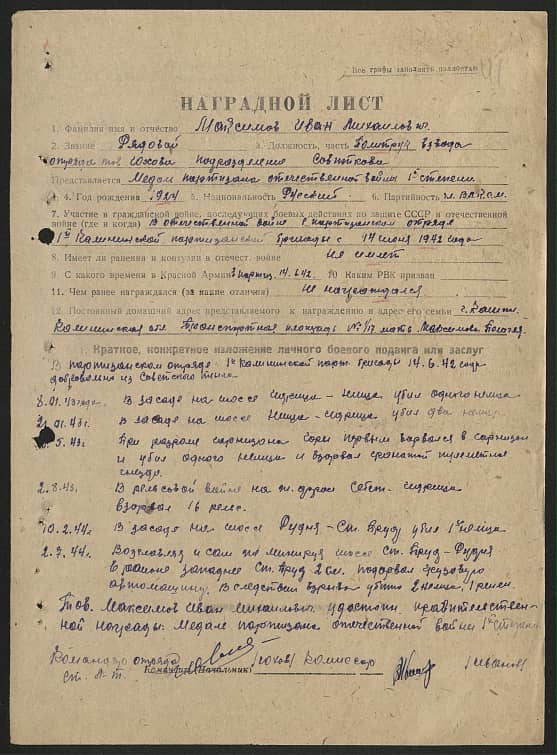 Все графы заполнять полностью
НАГРАДНОЙ ЛИСТ
1. Фамилия имя и отчество Максимов Иван Михайлович.
2. Звание Рядовой 3. Должность, часть Политрук взвода
отряда тов Юхова подразделение Савиткова
Представляется Медали партизана отечественной войны 1й степени
4. Год рождения 1924 5. Национальность Русский 6. Партийность чл. ВЛКСМ.
7. Участие в гражданской войне, последующих боевых действиях по защите СССР и отечественной
войне (где и когда) В отечественной войне в партизанском отряде
1й Калининской партизанской бригады с 14 июня 1942 года
8. Имеет ли ранения и контузии в отечест. войне Не имеет
9. С какого времени в Красной Армии в партиз. 14.6.42г. 10 Каким РВК призван
11. Чем ранее награждался (за какие отличия) Не награждался
12. Постоянный домашний адрес представляемого к награждению и адрес его семьи
Калининская обл. Транспортная площадь № мать Максимова
1. Краткое, конкретное изложение личного боевого подвига или заслуг
В партизанском отряде 1й Калининской парт. бригады 14.6.42 года
добровольно из Советского тыла
8.01.43 года. В засаде на шоссе Сидища - Нища убил одного немца
21.01.43г. В засаде на шоссе Нища - Сидища убил два немца
5.43г. При разгроме гарнизона первым ворвался в гарнизон
и убил одного немца и взорвал гранатой пулеметное
гнездо.
2.8.43г. В рельсовой войне на ж. дороге Себеж - Идрица
взорвал 16 рельс.
10.2.44г. В засаде на шоссе Рудня - Ст. Пруд убил 1 немца
2.7.44г. Возглавлял и сам по минируя шоссе ст. Пруд - Рудня
в районе западнее Ст. Пруд 2 км. подорвал грузовую
автомашину. В следствии взрыва убито 2 немца, 1 ранен.
Тов. Максимов Иван Михайлович удостоен правительствен-
ной награды: Медали партизана отечественной войны 1й степени
Командир отряда (Юхов) Комиссар (Иванов)
ст. л-т. Командир (Начальник)